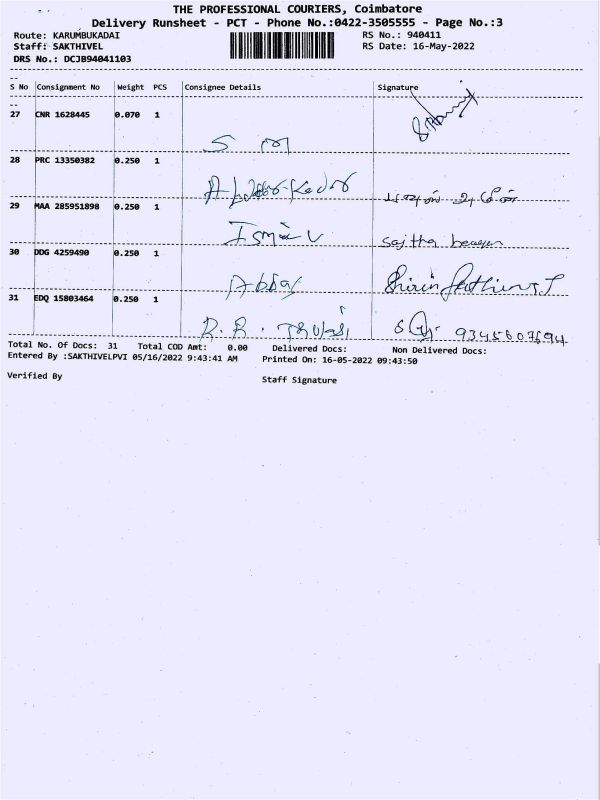 THE PROFESSIONAL COURIERS, Coimbatore
Delivery Runsheet - PCT - Phone No.:0422-3505555 - Page No.:3
Route: KARUMBUKADAI RS No.: 940411
Staff: SAKTHIVEL RS Date: 16-May-2022
DRS No.: DCJB94041103
S No Consignment No Weight PCS Consignee Details Signature
27 CNR 1628445 0.070 1
28 PRC 13350382 0.250 1
29 MAA 285951898 0.250 1
Sajitha begum
30 DDG 4259490 0.250 1
Abbas
31 EDQ 15803464 0.250 1
R.R. Thulasi
Total No. Of Docs: 31 Total COD Amt: 0.00 Delivered Docs: Non Delivered Docs:
Entered By :SAKTHIVELPVI 05/16/2022 9:43:41 AM Printed On: 16-05-2022 09:43:50
Verified By Staff Signature